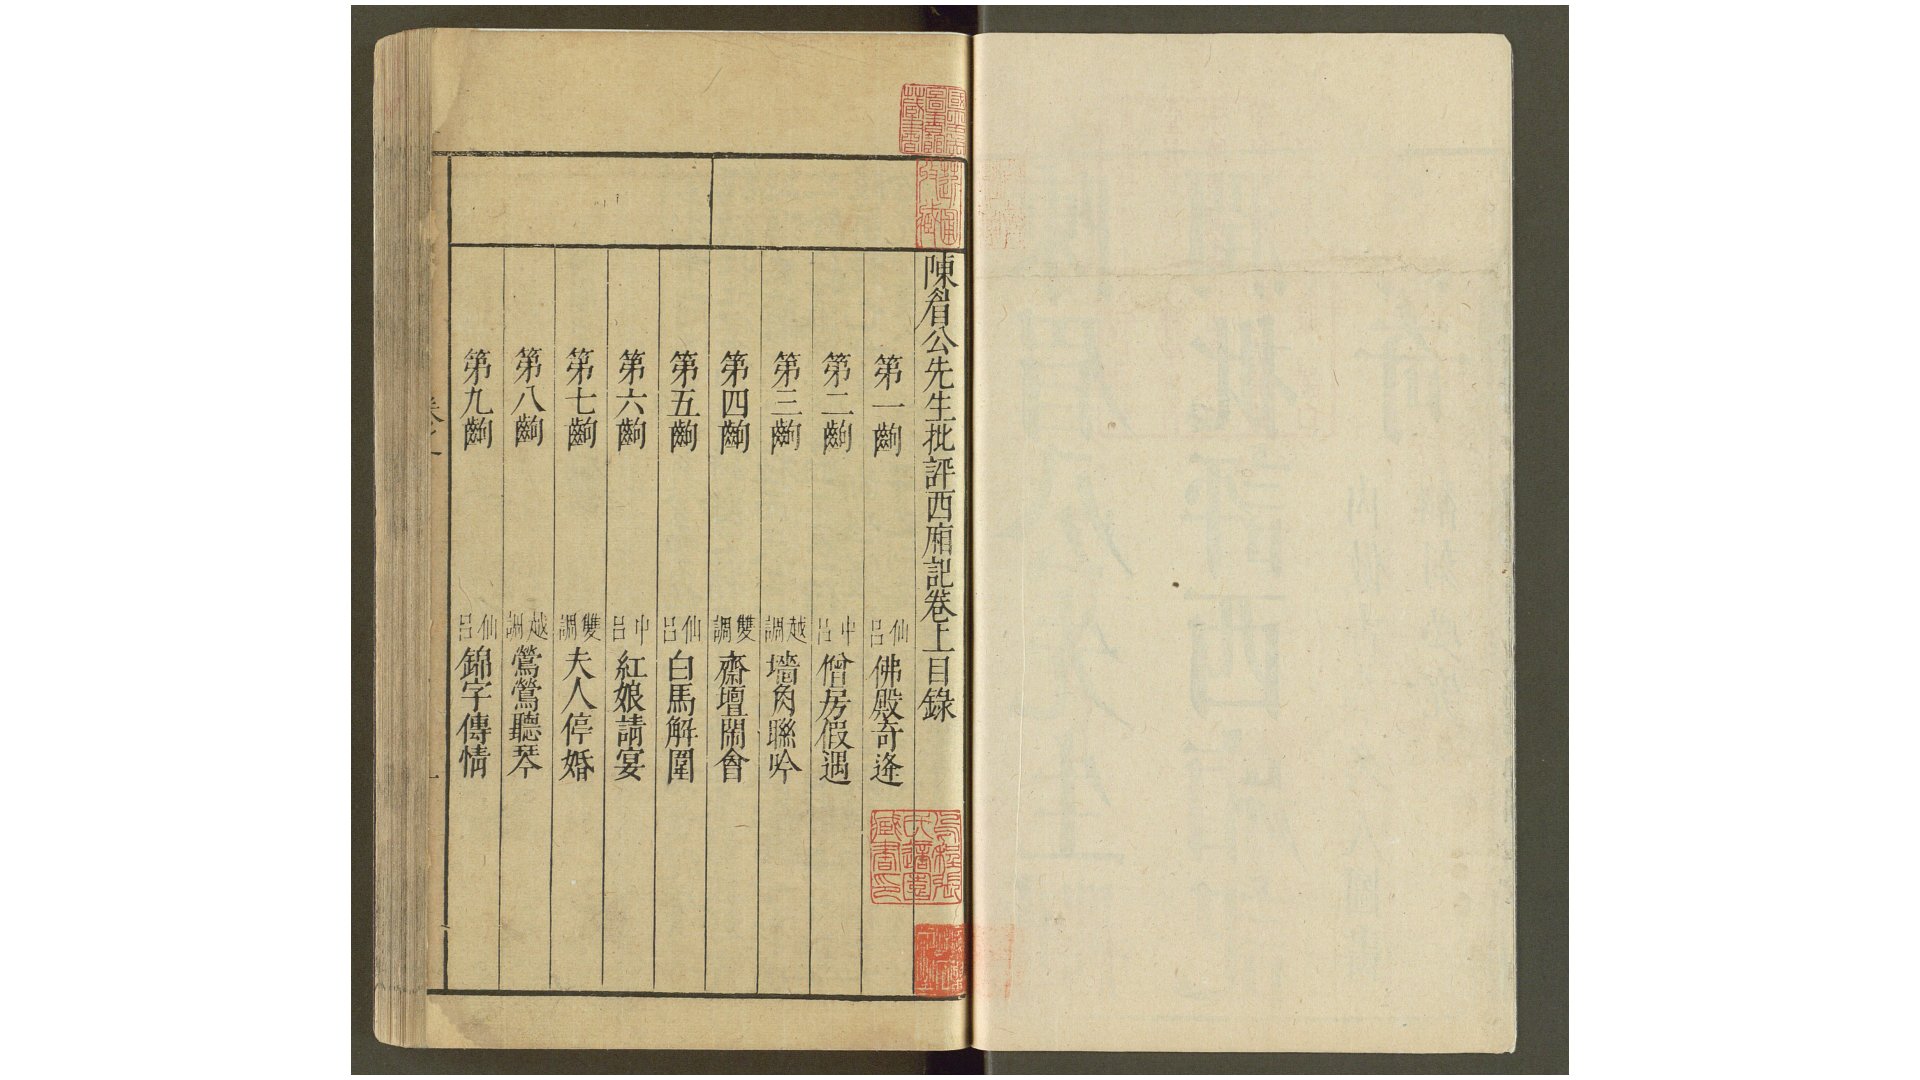 陳眉公先生批評西廂記卷上目錄
第一齣 仙呂 佛殿奇逢
第二齣 中呂 僧房假遇
第三齣 越調 墻角聯吟
第四齣 雙調 齋壇鬧會
第五齣 仙呂 白馬解圍
第六齣 中呂 紅娘請宴
第七齣 雙調 夫人停婚
第八齣 越調 鶯鶯聽琴
第九齣 仙呂 錦字傳情